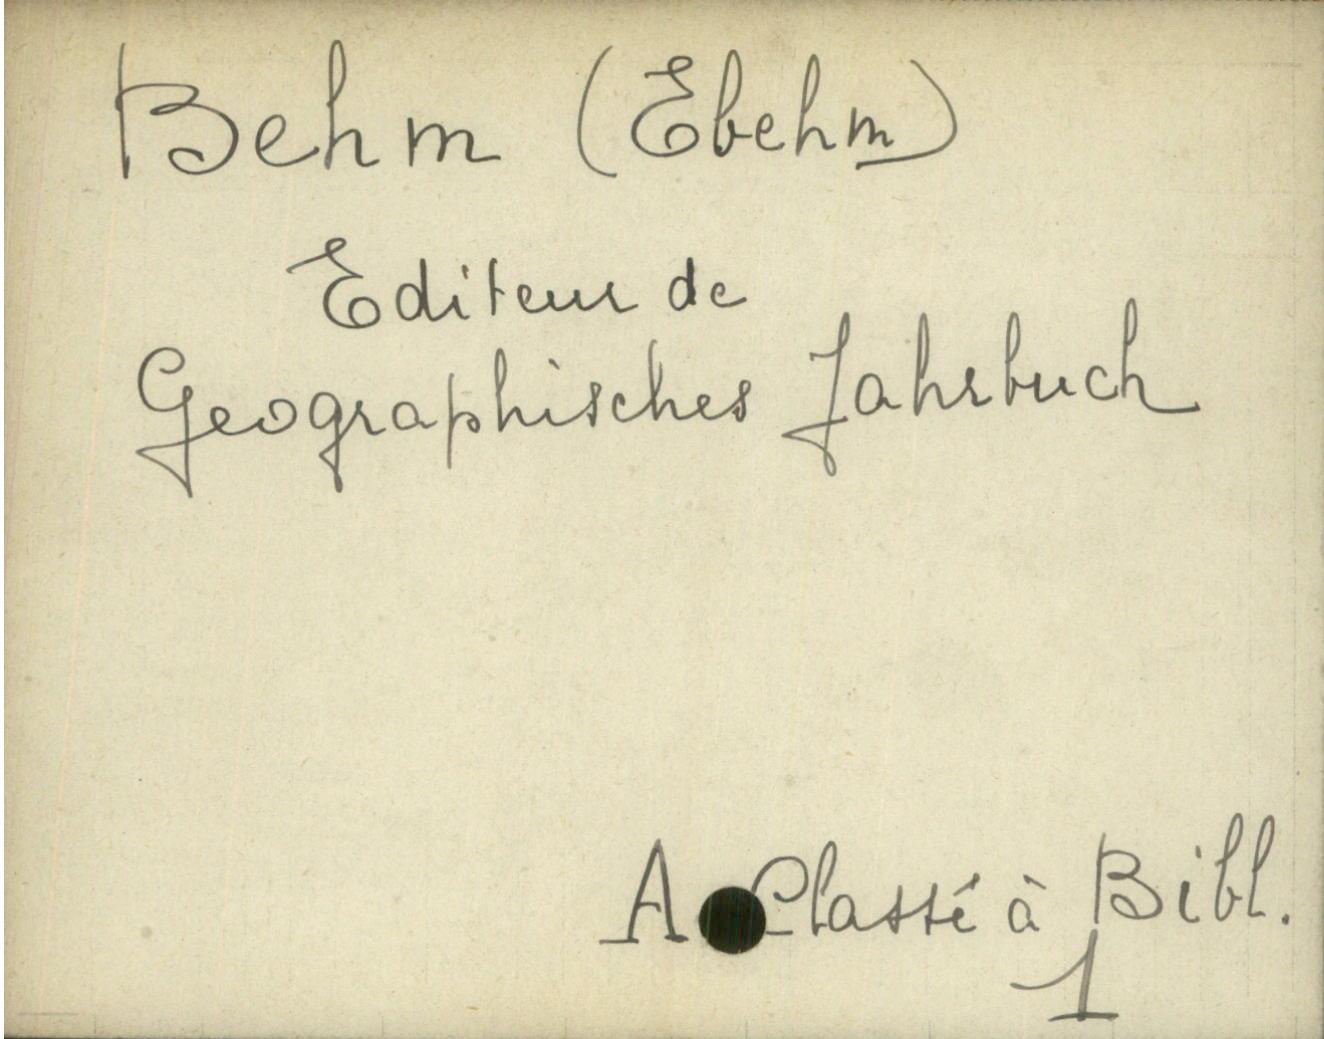 Behm (Ebehm)
Editeur de
Geographisches Jahrbuch
A Classé à Bibl.
1